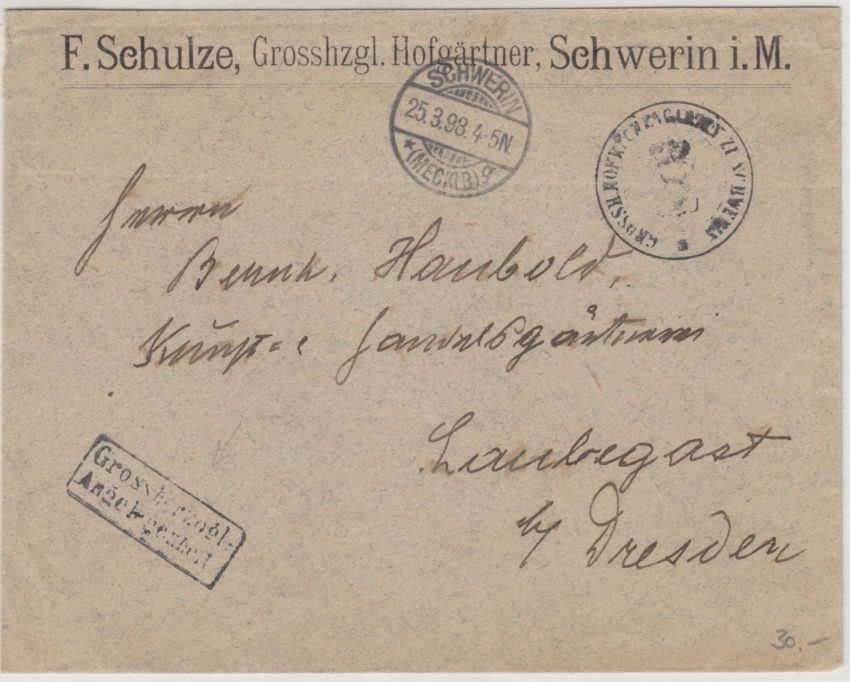 F. Schulze, Grosshzgl. Hofgärtner, Schwerin i. M.
SCHWERIN
25.3.98.4-5N.
* (MECKLB.) g
GROSSH. HOFKÜCHENGARTEN ZU SCHWERIN *
Herrn
Bernh. Haubold,
Kunst- & Handelsgärtnerei
Laubegast
b/ Dresden
Grossherzogl.
Angelegenheit
30.-